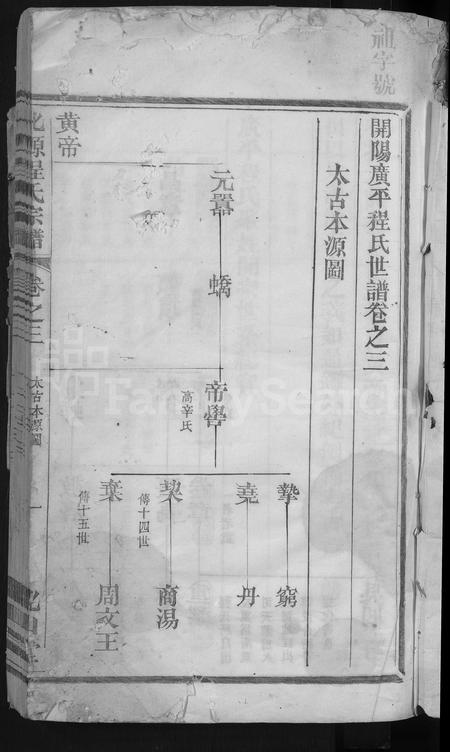 祖字號
開陽廣平程氏世譜卷之三
太古本源圖
元囂
蟜
帝嚳
高辛氏
摯
窮
堯
丹
契
傳十四世
商湯
棄
傳十五世
周文王
黄帝
源程氏宗譜
卷之三
太古本源圖
一
FamilySearch